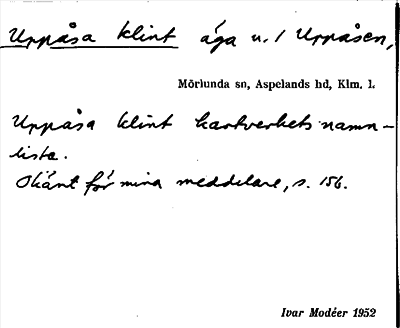 Uppåsa klint äga u. / Uppåsen,
Mörlunda sn, Aspelands hd, Klm. l.
Uppåsa klint kartverkets namn-
lista.
Okänt för mina meddelare, s. 156.
Ivar Modéer 1952